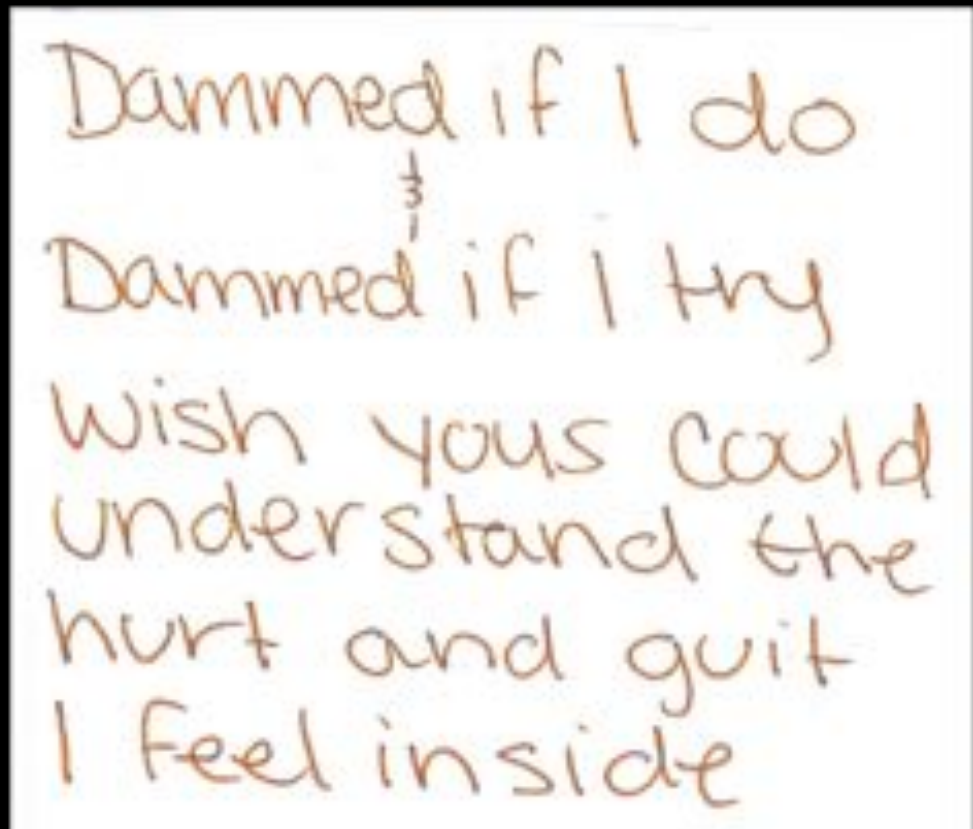 Dammed if I do
&
Dammed if I try
Wish yous could
understand the
hurt and guit
I feel inside